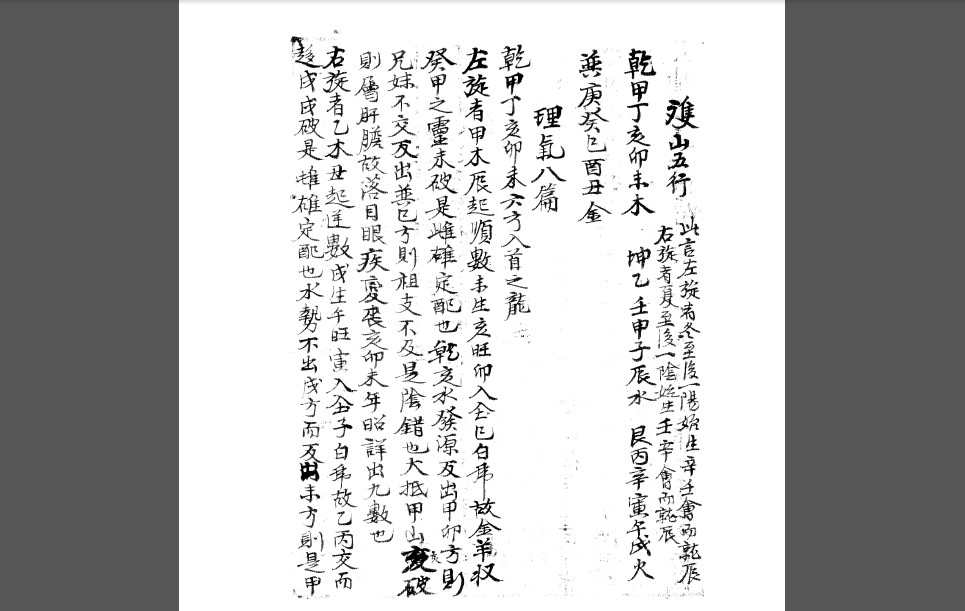 雙山五行
此言左旋者冬至後一陽始生辛壬會而聚辰
右旋者夏至後一陰始生壬辛會而聚辰
乾甲丁亥卯未木 坤乙壬申子辰水 艮丙辛寅午戌火
巽庚癸巳酉丑金
理氣八篇
乾甲丁亥卯未六方入首之龍
左旋者甲木辰起順數未生亥旺卯入仝巳白郣故金羊収
癸甲之靈未破是雌雄定配也乾亥水發源及出甲卯方則
兄妹不交反出巽巳方則祖支不及是陰錯也大抵甲山変破
則屬肝膽故落目眼疾憂喪亥卯未年昭詳出九數也
右旋者乙木丑起逆數戌生午旺寅入仝子白郣故乙丙交而
趍戌戌破是雌雄定配也水勢不出戌方而及出未方則是甲